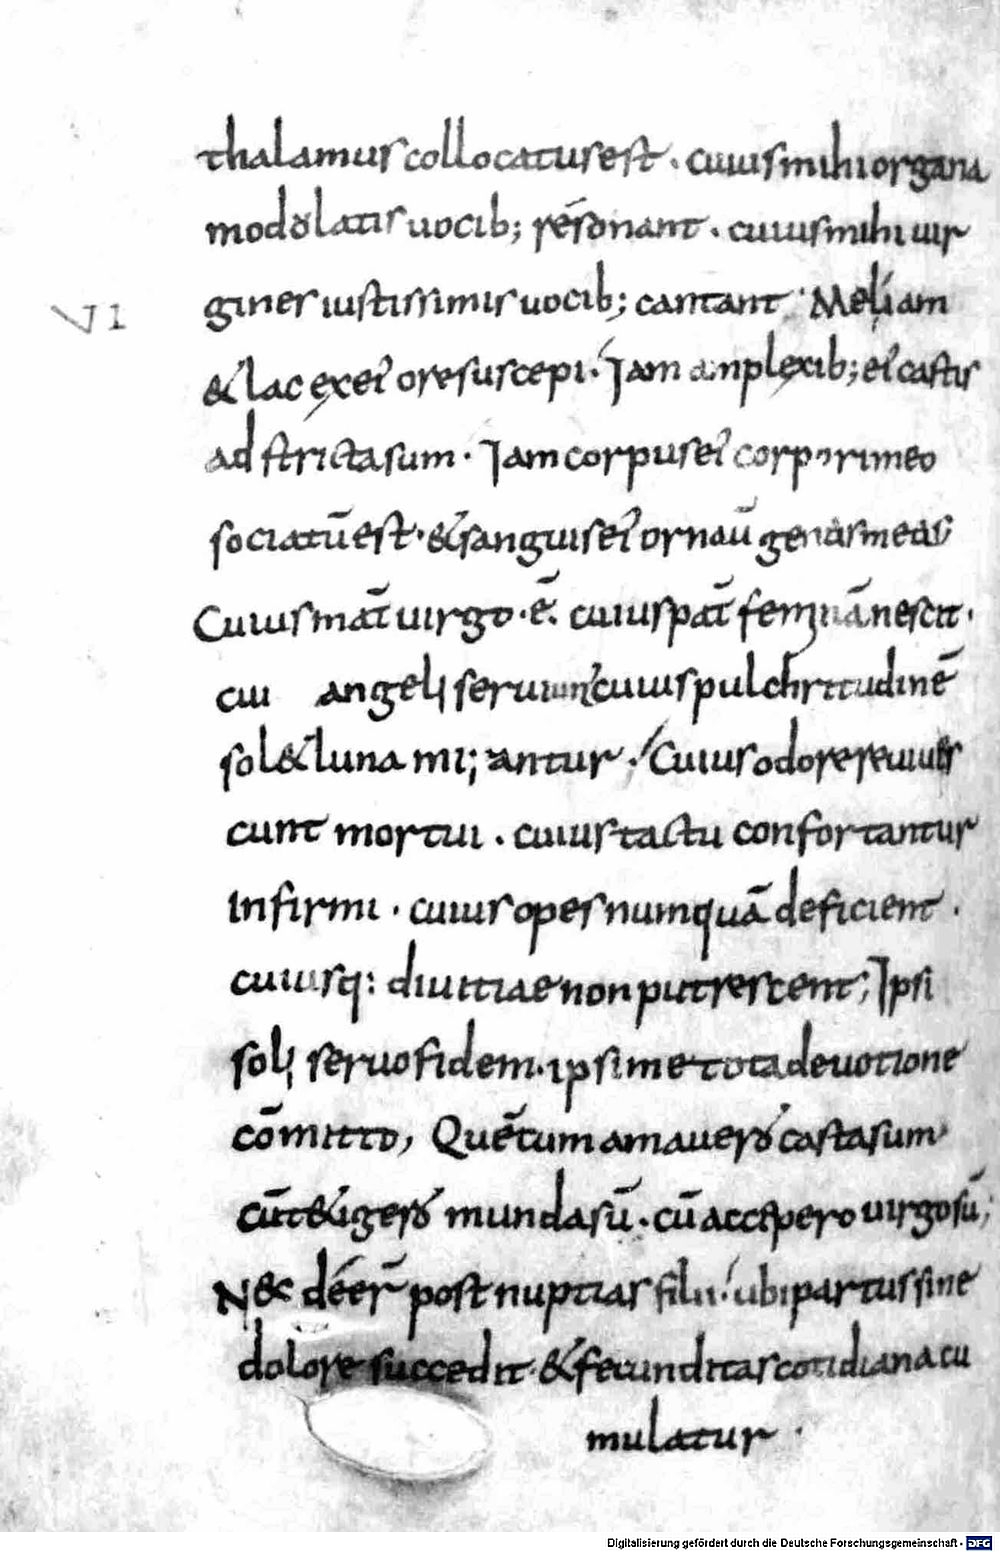 thalamus collocatus est . cuius mihi organa
modolatis uocib; resonant . cuius mihi uir
gines iustissimis uocib; cantant . Meli am
VI
& lac ex ei' ore suscepi . Iam amplexib; ei' castis
ad stricta sum . Iam corpus ei' corpori meo
sociatū est . & sanguis ei' ornau̅ genas meas
Cuius mat̄ uirgo . ē . cuius pat̄ feminā nescit .
cui angeli seruiunt cuius pulchritudinē
sol & luna mi; antur . Cuius odore reuiues
cunt mortui . cuius tactu confortantur
infirmi . cuius opes numquā deficient .
cuiusq: diuitiae non putrescent ; Ipsi
soli seruo fidem . ipsi me tota deuotione
cōmitto , Quē cum amauero casta sum
cū tetigero munda sū . cū accepero uirgo sū ;
Nec deer̄ post nuptias filii . ubi partus sine
dolore succedit . & fecunditas cotidiana cu
mulatur .
Digitalisierung gefördert durch die Deutsche Forschungsgemeinschaft - DFG